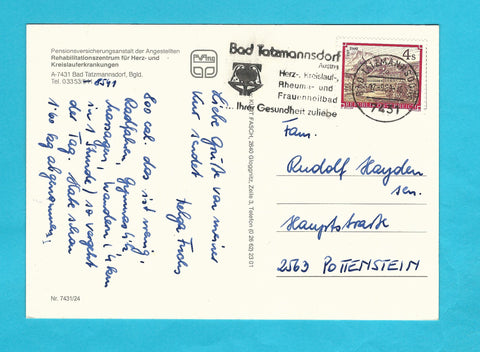 Pensionsversicherungsanstalt der Angestellten
Rehabilitationszentrum für Herz- und
Kreislauferkrankungen
A-7431 Bad Tatzmannsdorf, Bgld.
Tel. 03353/8541
Liebe Grüße von meiner
Kur sendet
Helga Fuchs
800 cal. das ist wenig,
Radfahren, Gymnastik,
Massagen, Wandern (4 km
in 1 Stunde) so vergeht
der Tag. Habe schon
1'60 kg abgenommen!
Nr. 7431/24
Bad Tatzmannsdorf
Austria
Herz-, Kreislauf-,
Rheuma- und
Frauenheilbad
... Ihrer Gesundheit zuliebe
4 S
REPUBLIK ÖSTERREICH
7431
FASCH, 2640 Gloggnitz, Zeile 3, Telefon (0 26 62) 23 01
Fam.
Rudolf Hayden
sen.
Hauptstraße
2563 POTTENSTEIN